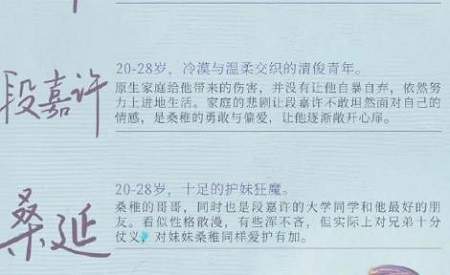 段嘉许
20-28岁，冷漠与温柔交织的清俊青年。
原生家庭给他带来的伤害，并没有让他自暴自弃，依然努
力上进地生活。家庭的悲剧让段嘉许不敢坦然面对自己的
情感，是桑稚的勇敢与偏爱，让他逐渐敞开心扉。
桑延
20-28岁，十足的护妹狂魔。
桑稚的哥哥，同时也是段嘉许的大学同学和他最好的朋
友。看似性格散漫，有些浑不吝，但实际上对兄弟十分
仗义，对妹妹桑稚同样爱护有加。